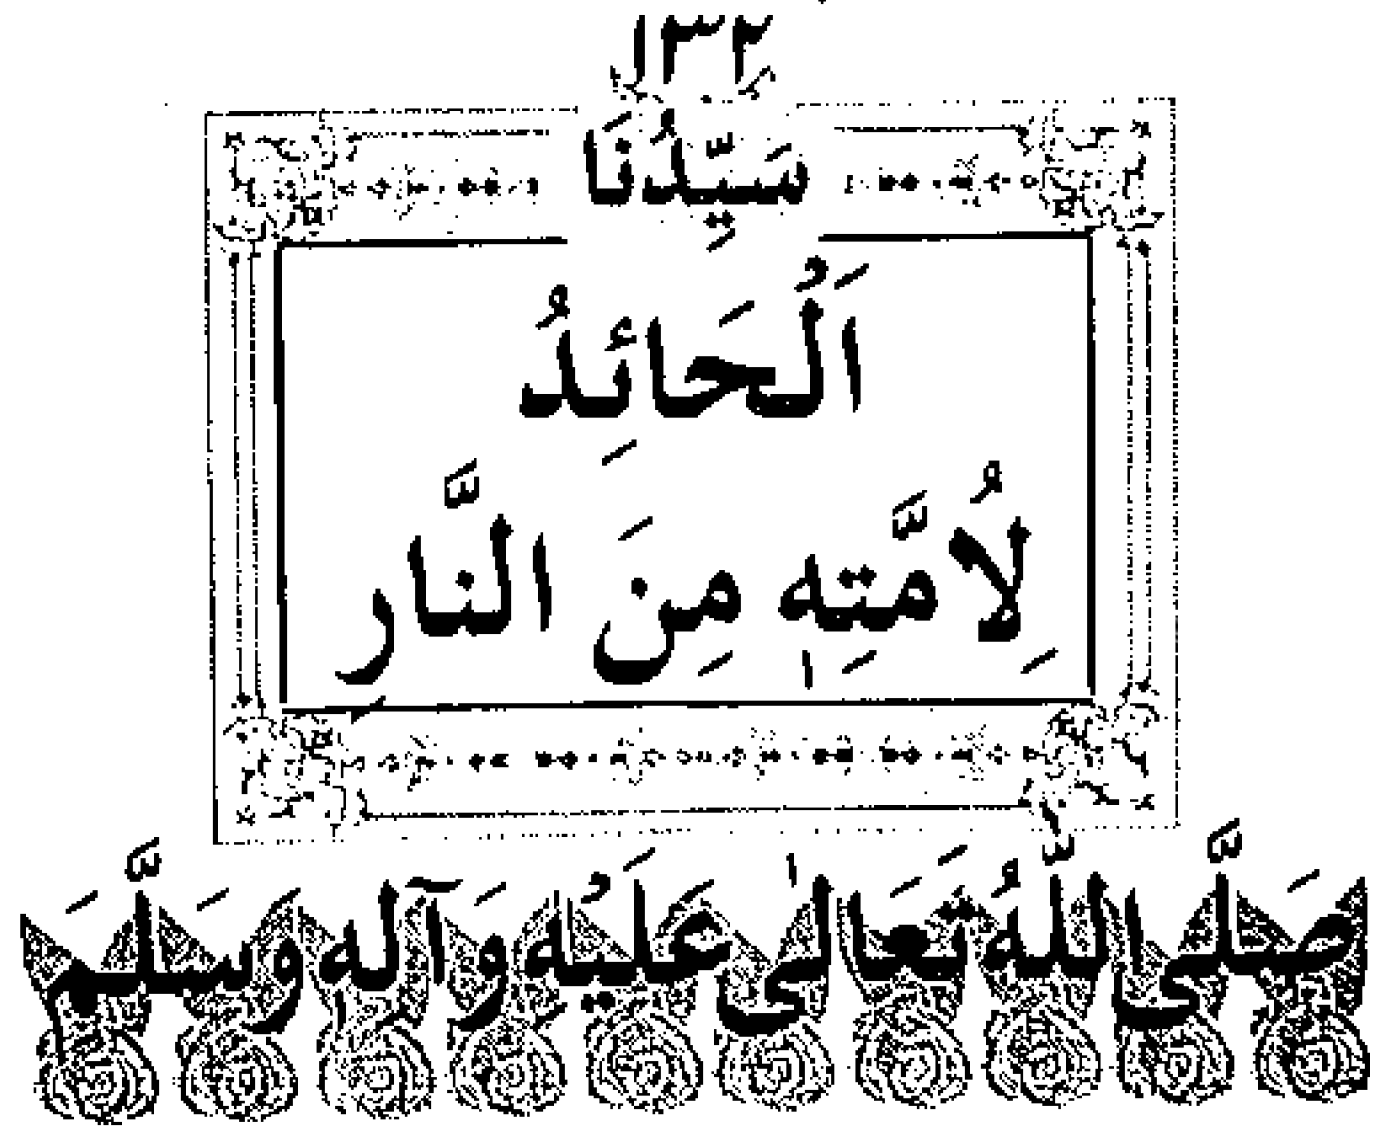 ١٣٢
سَيِّدُنَا
اَلْحَائِدُ
لِاُمَّتِهٖ مِنَ النَّارِ
صَلَّى اللّٰهُ تَعَالٰى عَلَيْهِ وَآلِهٖ وَسَلَّمَ